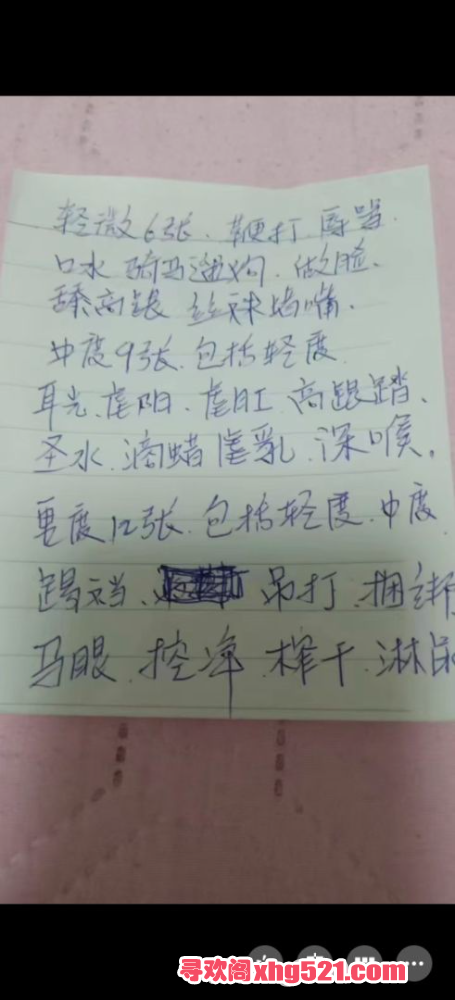 轻微6张.鞭打 辱骂.
口水 骑马遛狗.做脸.
舔高跟 丝袜堵嘴.
中度9张.包括轻度
耳光.虐阳.虐肛.高跟踏.
圣水.滴蜡 虐乳.深喉.
重度12张.包括轻度.中度
踢裆. 吊打.捆绑
马眼.控

.榨干.淋尿
寻欢阁xhg521.com